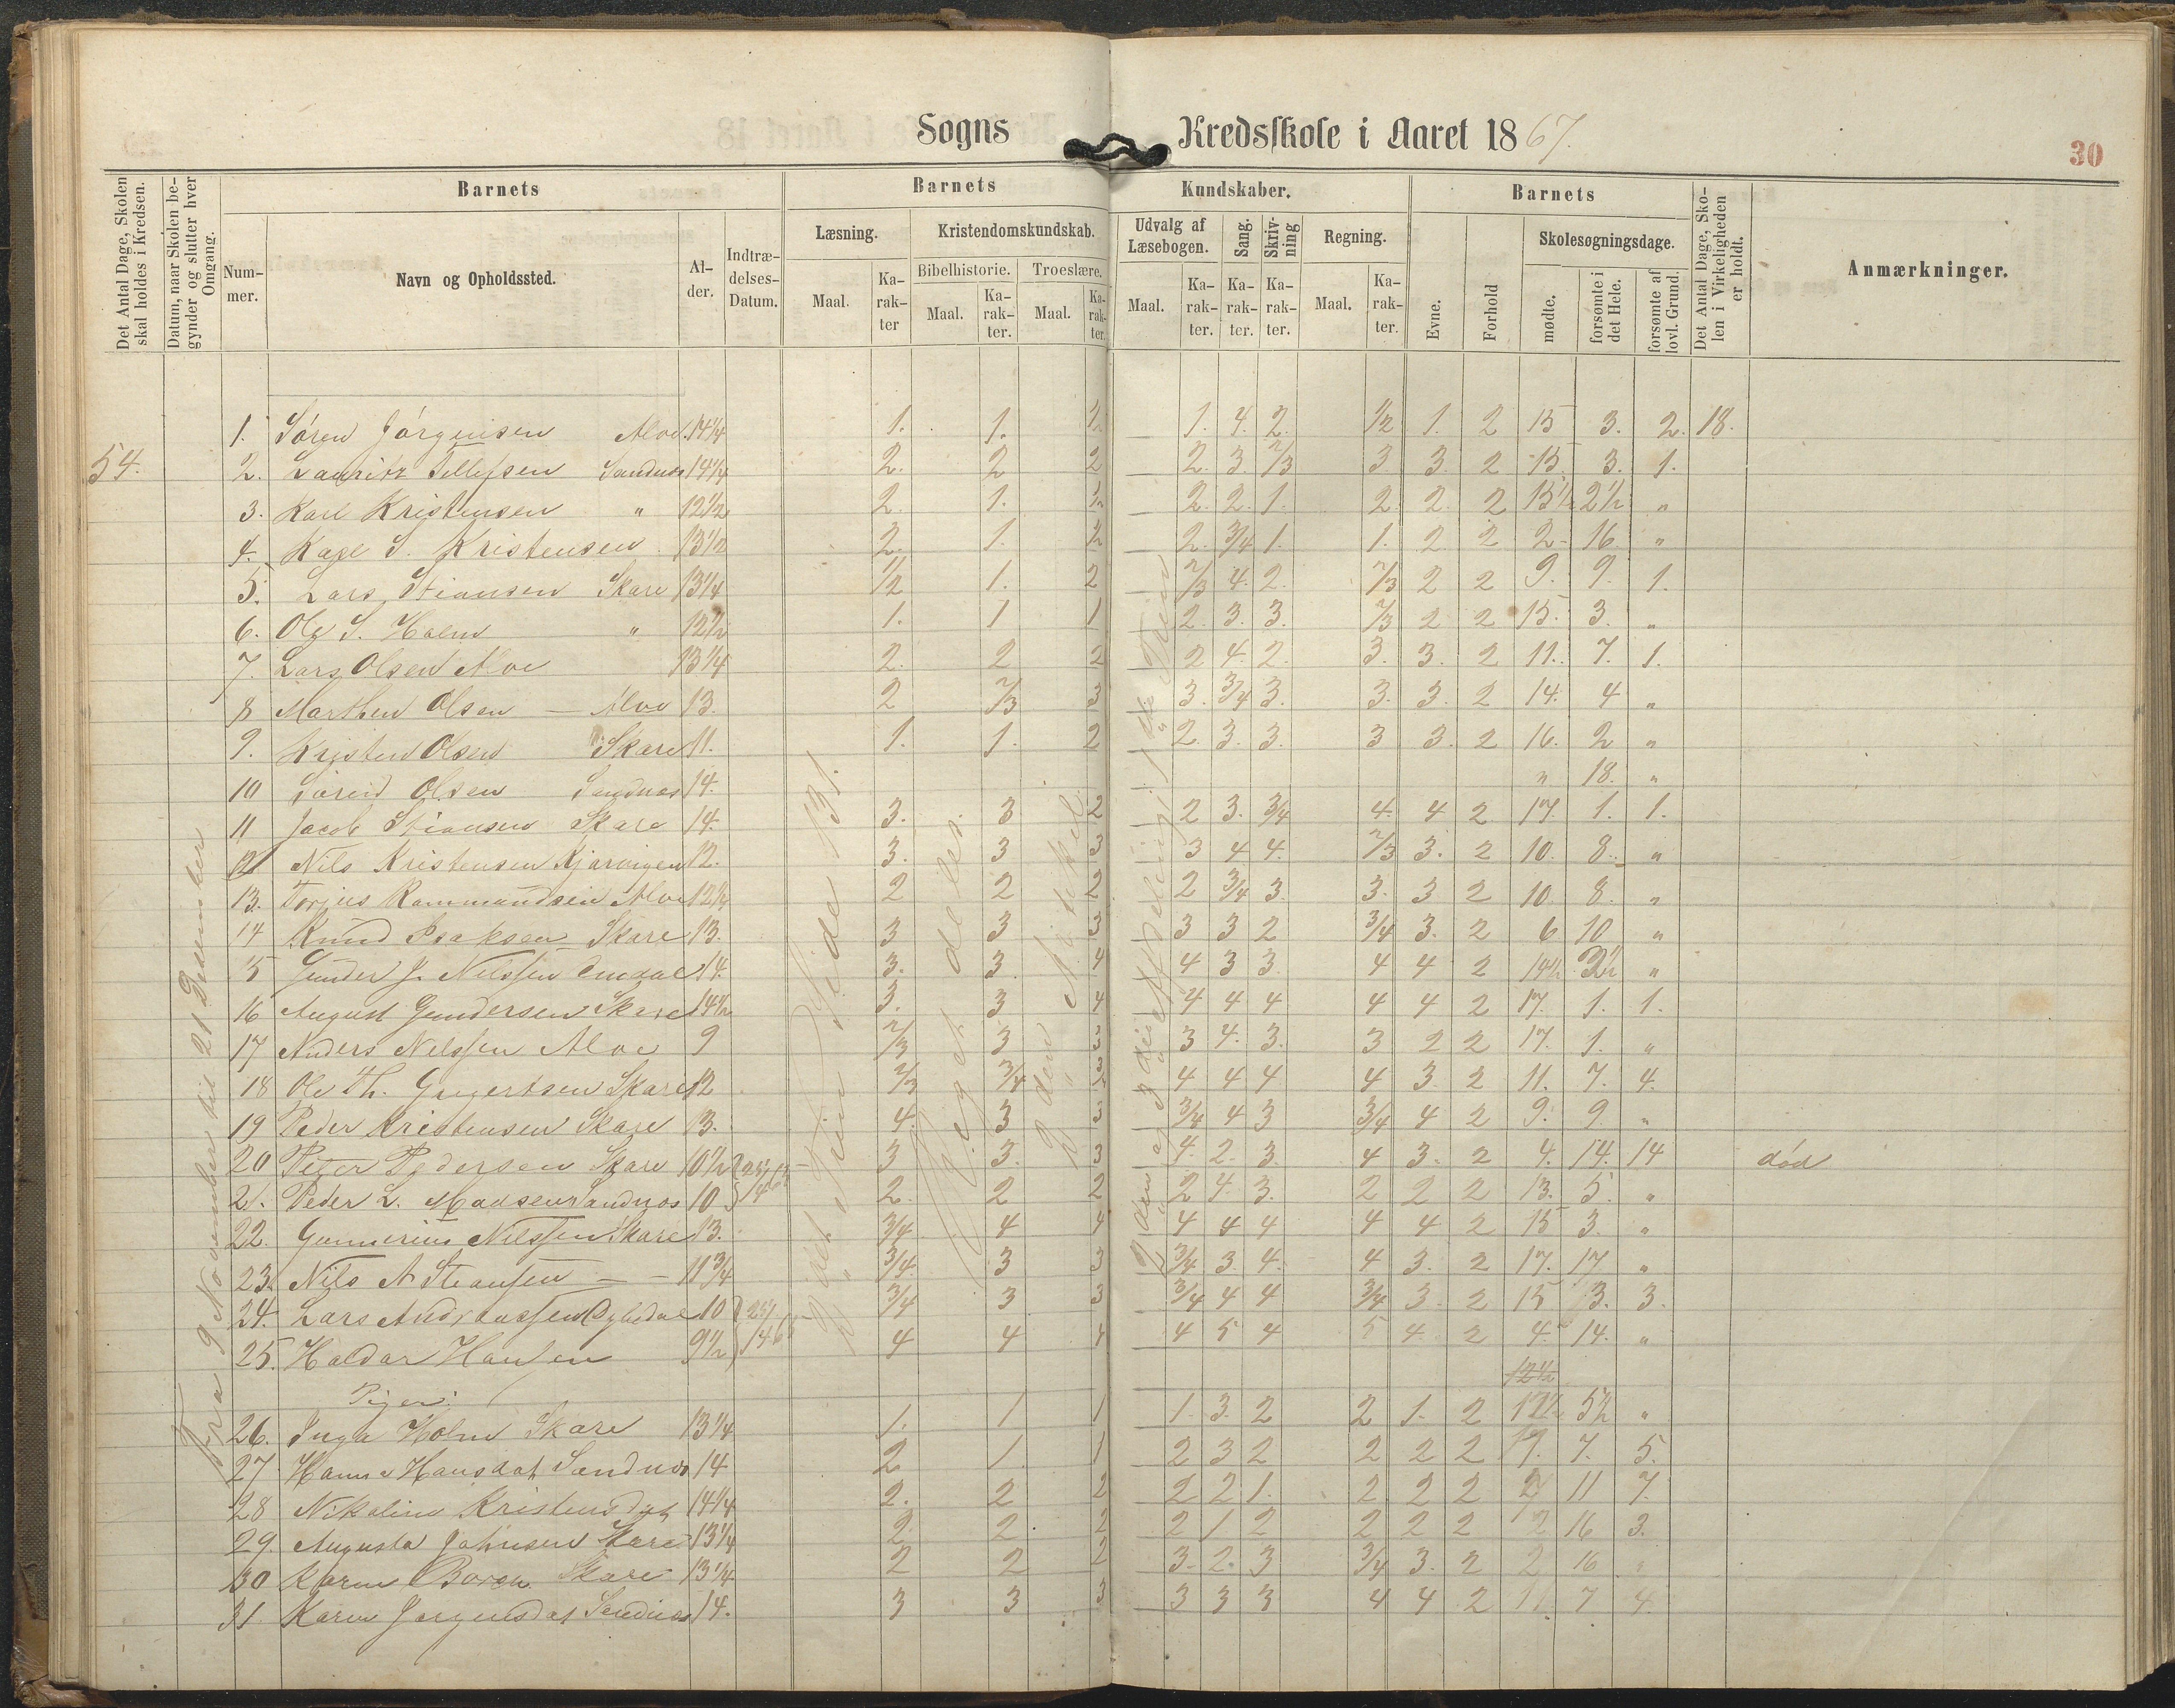 Sogns Kredsskole i Aaret 1867.
30
Det Antal Dage, Skolen skal holdes i Kredsen.
Datum, naar Skolen begynder og slutter hver Omgang.
Barnets
Nummer.
Navn og Opholdssted.
Alder.
Indtrædelses-Datum.
Barnets Kundskaber.
Læsning.
Maal.
Karakter
Kristendomskundskab.
Bibelhistorie.
Maal.
Karakter.
Troeslære.
Maal.
Karakter.
Udvalg af Læsebogen.
Maal.
Karakter.
Sang.
Karakter.
Skrivning
Karakter.
Regning.
Maal.
Karakter.
Barnets
Evne.
Forhold
Skolesøgningsdage.
mødte.
forsømte i det Hele.
forsømte af lovl. Grund.
Det Antal Dage, Skolen i Virkeligheden er holdt.
Anmærkninger.
54.
Fra 9 November til 21 December
1. Søren Jørgensen Aloe. 14 1/4 1. 1. 1/2 1. 4. 2. 1/2 1. 2 15 3. 2. 18.
2. Lauritz Tellefsen Sandnæs 14 1/4 2. 2 2 2. 3. 2/3 3. 3. 2 15. 3. 1.
3. Karl Kristensen " 12 1/2 2. 1. 1/2 2. 2. 1. 2. 2. 2 15 1/2 2 1/2 "
4. Kage S. Kristensen 13 1/2 2. 1. 1/2 2. 3/4 1. 1. 2 2 2 16 "
5. Lars Stiansen Skare 13 1/4 1/2 1. 2 2/3 4. 2. 2/3 2 2 9. 9. 1.
6. Ole S. Holm " 12 1/2 1. 1 1 2. 3. 3. 2/3 2 2 15. 3. "
7. Lars Olsen Aloe 13 1/4 2. 2 2 2 4. 2. 3. 3. 2 11. 7. 1.
8 Marthen Olsen — Aloe 13. 2 2/3 3 3. 3/4 3. 3. 3. 2 14. 4 "
9. Kristen Olsen Skare 11. 1. 1. 2 2. 3. 3. 3 3. 2 16. 2 "
10 Olsen Sandnæs 14. " 18. "
11 Jacob Stiansen Skare 14. 3. 3 2 2 3. 3/4 4. 4 2 17. 1. 1.
12 Nils Kristensen Kjørvigen 12. 3. 3 3 3 4 4. 2/3 3. 2 10. 8. "
13. Torjus Rommundsen Aloe 12 1/4 2 2 2 2 3/4 3. 3. 3 2 10. 8. "
14 Knud Isaksen Skare 13. 3 3 3 3 3 2 3/4 3. 2 6 10 "
15 Gunder J. Nilssen 14. 3. 3. 4 4 3 3. 4 4 2 14 1/2 3 1/2 "
16 August Gundersen Skare 14 1/2 3. 3 4 4 4 4 4 4 2 17. 1. 1.
17 Anders Nelssen Aloe 9 2/3 3 3 3 4. 3. 3 2 2 17. 1. "
18 Ole Th. Gregertsen Skare 12 2/3 3/4 4 4 4 4 3. 2 11. 7. 4.
19 Peder Kristensen Skare 13. 4. 3 3 3/4 4 3 3/4 4 2 9. 9. "
20 Peter Pedersen Skare 10 1/2 3 3. 3 4. 2. 3. 4 3. 2 4. 14. 14 død
21. Peder L. Madsen Sandnæs 10 2. 2 2 2 4. 3. 2 2 2 13. 5. "
22. Gunnerius Nilssen Skare 13. 3/4 4 4 4 4 4 4 4 2 15 3. "
23. Nils A Stiansen — — 11 3/4 3/4 3 3 3/4 3. 4. 4 3. 2 17. 17 "
24. Lars Andreassen 10 3/4 3 3 3/4 4 4 3/4 3. 2 15 3. 3.
25. Haldor Hansen 9 1/2 4 4 4 4 5 4 5 4 2 4. 14. "
12 1/2
Piger:
26. Inga Holm Skare 13 1/4 1. 1 1 1. 3. 2 2 1. 2 12 1/2 5 1/2 "
27 Hanne Hansdat. Sandnæs 14 2 1. 1 2 3 2 2 2 2 11. 7. 5.
28 Nikoline Kristensdat 14 1/4 2. 2 2 2 2 1. 2. 2 2 7 11 7.
29. Augusta Johnsen Skare 13 1/4 2. 2. 2 2 1 2 2 2 2 2 16 3.
30 Karen Boren Skare 13 1/4 2 2 2 3. 2. 3 3/4 3. 2 2 16 "
31. Karen Jørgensdat Sandnæs 14. 3 3 3 3 3 3 4 4 2 11. 7 4.
Side 131.
2 den Artikel
2 den og 3 die Afdeling